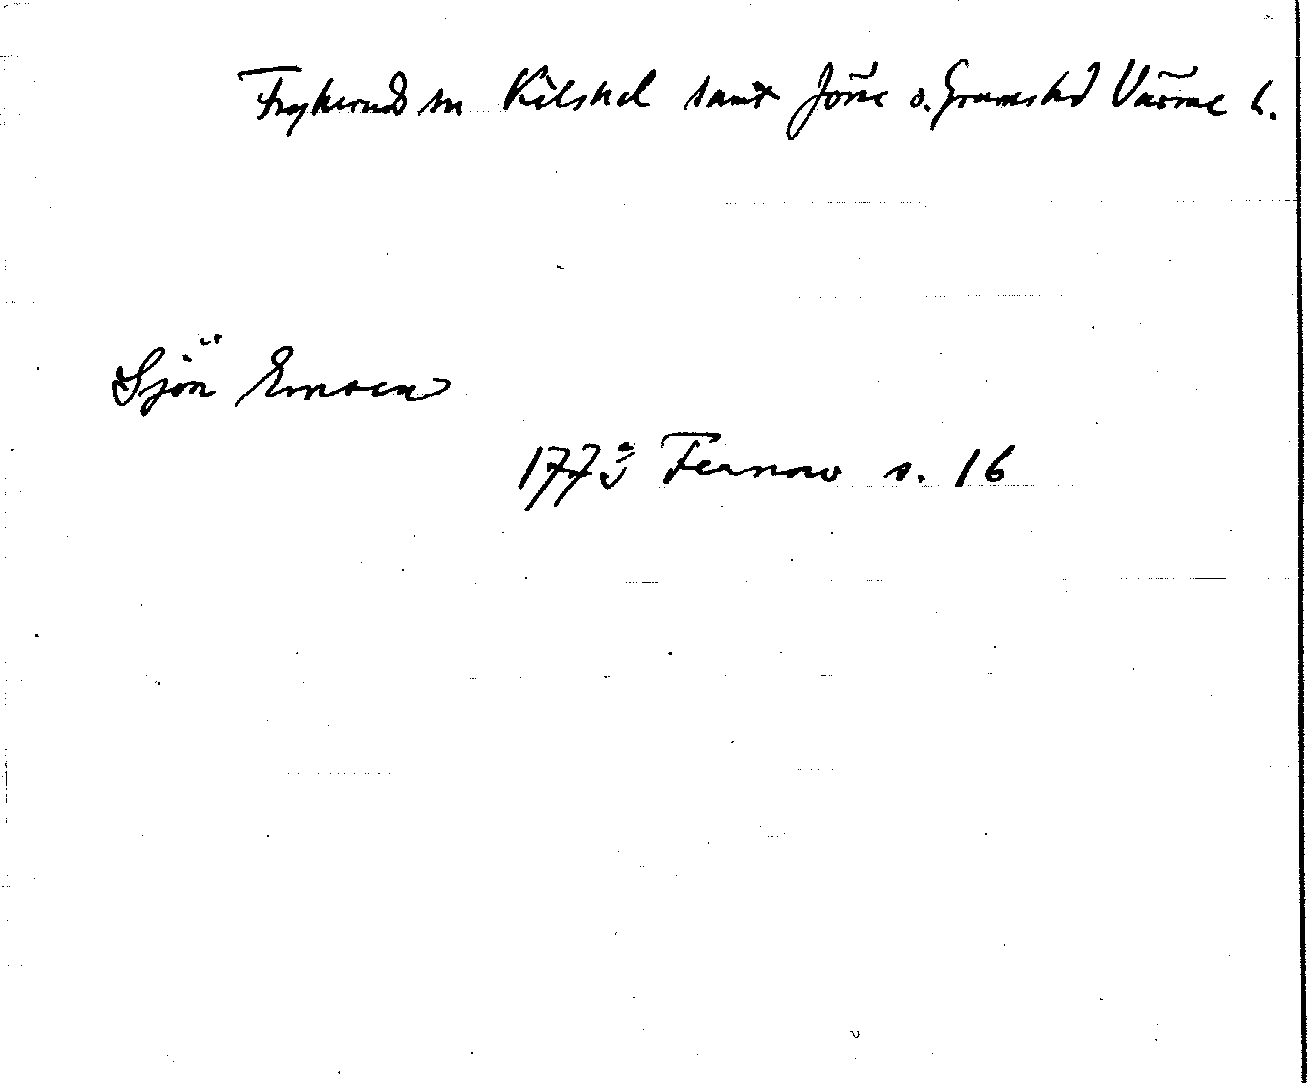 Frykerud sn Kils hd samt Jösse o. Grums hd Värml l.
Sjön Emsen
1773 Fernow s. 16